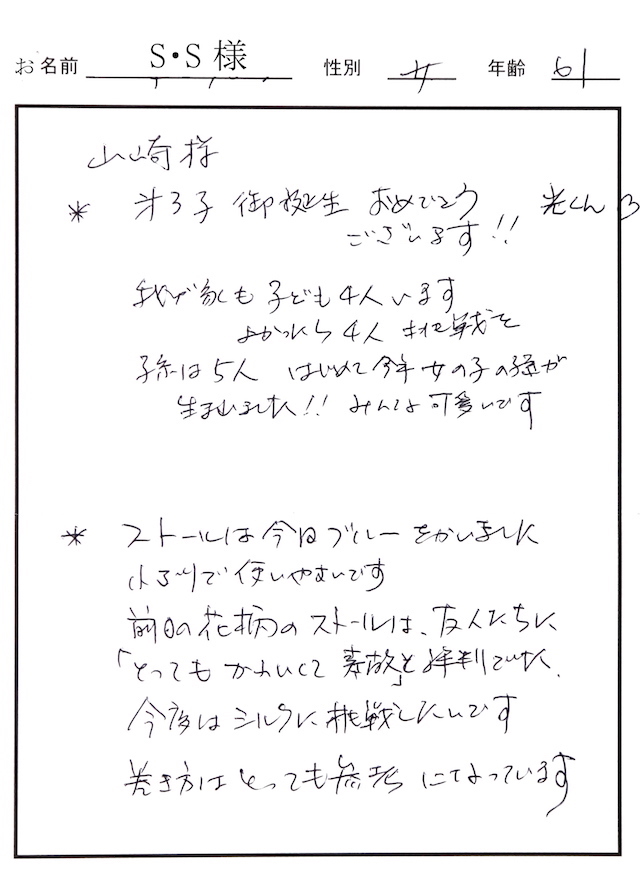 お名前 S・S 様 性別 女 年齢 61
山崎様
* 第3子 御誕生 おめでとう 光くん
ございます!!
我が家も子ども4人います
よかったら4人 挑戦を
孫は5人 はじめて今年女の子の孫が
生まれました!! みんな可愛いです
* ストールは今日ブルーをかいました
小さめで使いやすいです
前回の花柄のストールは、友人たちに
「とってもかわいくて素敵」と評判でした。
今度はシルクに挑戦したいです
巻き方はとっても参考になっています